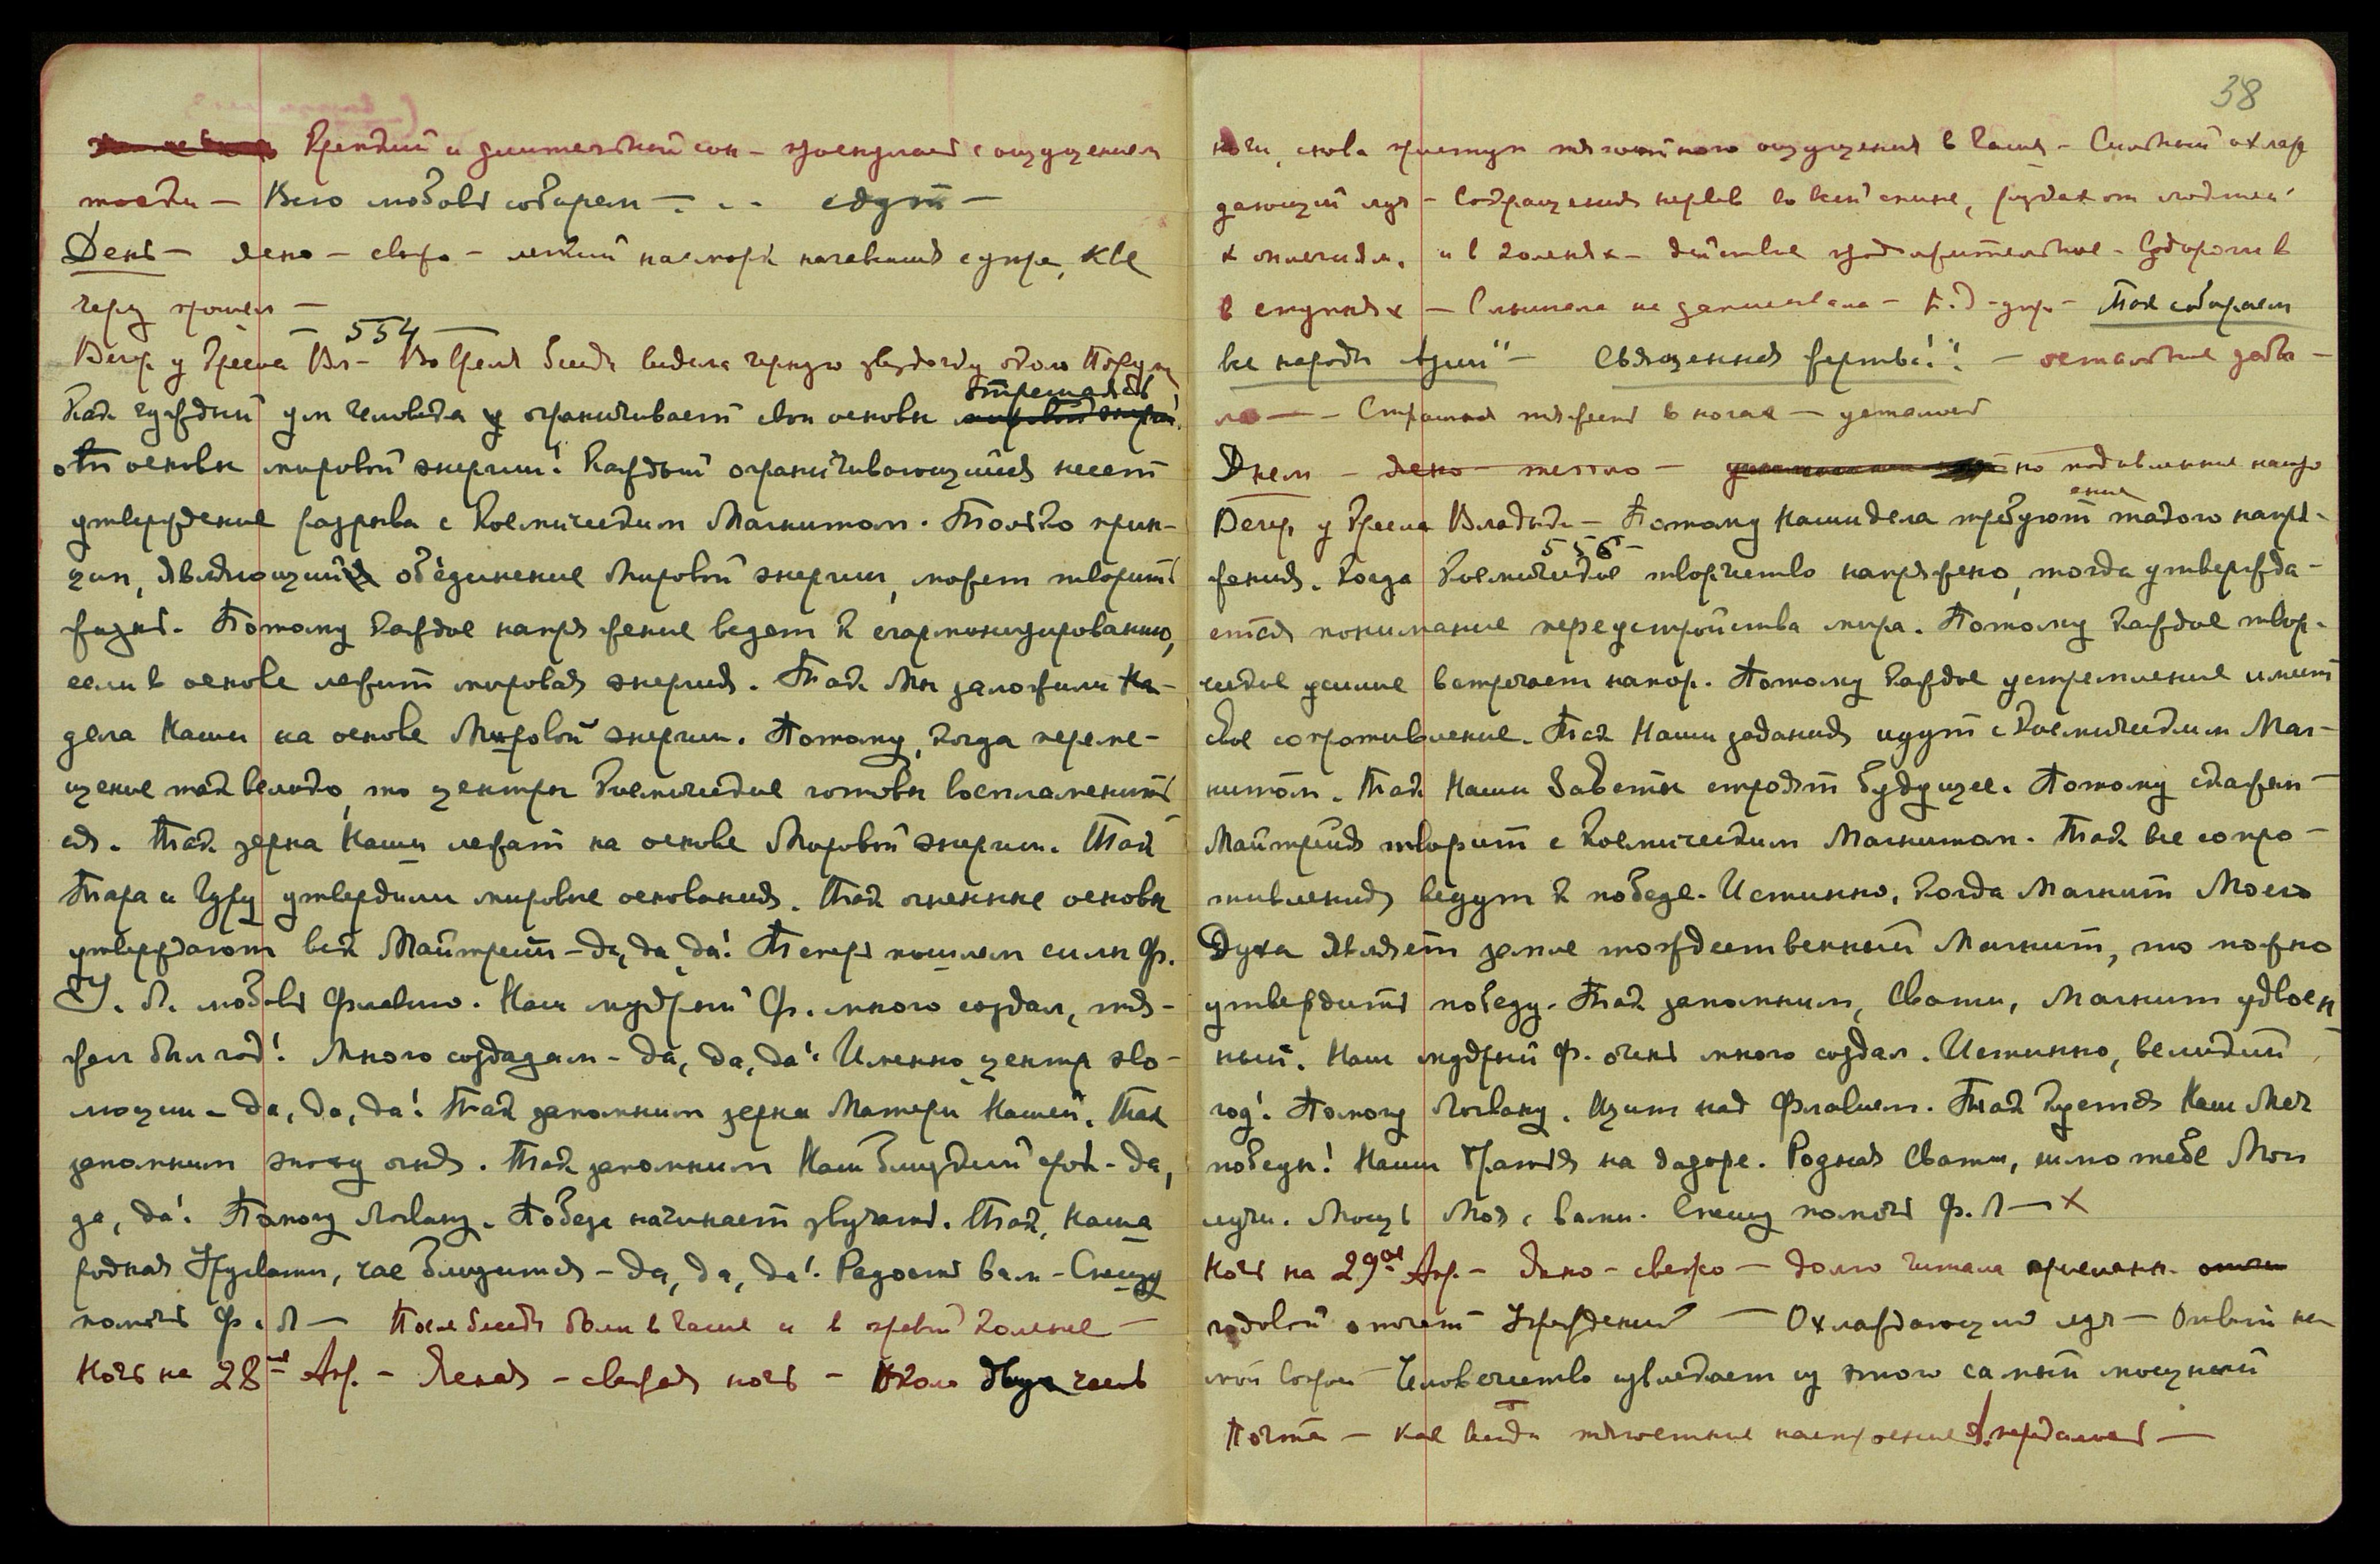 Крепкий и длительный сон – проснулась с ощущением
тоски – Всю любовь соберем – . . – едут –
День – Ясно – свежо – легкий насморк начавшийся с утра, к ве
черу прошел –
– 554 –
Вечер. у Кресла Вл – Во время беседы видела черную звездочку около
Как чуждый ум человека ограничивает свои основы отрешаясь
от основы мировой энергии! Каждый ограничивающийся несет
утверждение разрыва с Космическим Магнитом. Только прин-
цип, являющий объединение Мировой энергии, может творить
жизнь. Потому каждое напряжение ведет к сгармонизированию,
если в основе лежит мировая энергия. Так Мы заложили
дела Наши на основе Мировой энергии. Потому, когда переме-
щение так велико, то центры космические готовы воспламенить
ся. Так зерна Наши лежат на основе Мировой энергии. Так
Тара и Гуру утвердили мировые основания. Так огненные основы
утверждают век Майтрейи – да, да, да! Теперь пошлем силы Ф.
У. Л. любовь Флавию. Наш мудрый Ф. много создал, тя-
жел был год! Много создадим – да, да, да! Именно центр эво-
люции – да, да, да! Так запомним зерна Матери Нашей. Так
запомним эпоху огня. Так запомним Наш близкий срок – да,
да, да! Помогу Логвану. Победа начинает звучать. Так, Наша
родная Урусвати, час близится – да, да, да! Радость вам – Спешу
помочь Ф. Л – После беседы боли в Чаше и в правом колене –
Ночь на 28ое Апр. – Ясная – свежая ночь – Около двух часов
38
ночи, снова приступ тягостного ощущения в Чаше – Сильный охлаж
дающий луч – Сокращения нервов во всей спине, от локтей
к оплечиям, и в коленях – действие удовлетворительное – Судороги в
в ступнях – Слышала не записывала – К. утр. – Так собираем
все народы Азии" – Священная жертва"! – остальное забы –
ла – – Страшная тяжесть в ногах – усталость
Днем – ясно – тепло – но подавленное настро
ение
Вечер у Кресла Владыки – Потому Наши дела требуют такого напря-
– 556 –
жения. Когда Космическое творчество напряжено, тогда утвержда-
ется понимание переустройства мира. Потому каждое твор-
ческое усилие встречает напор. Потому каждое устремление имеет
свое сопротивление. Так Наши задания идут с Космическим Маг-
нитом. Так Наши Заветы строят будущее. Потому скажем –
Майтрейя творит с Космическим Магнитом. Так все сопро-
тивления ведут к победе. Истинно, когда Магнит Моего
Духа являет земле тождественный Магнит, то можно
утвердить победу. Так запомним, Свати, Магнит удвоен
ный. Наш мудрый Ф. очень много создал. Истинно, великий
год! Помогу Логвану. Щит над Флавием. Так куется Наш Меч
победы! Наши Братья на дозоре. Родная Свати, шлю тебе Мои
лучи. Мощь Моя с вами. Спешу помочь Ф. Л – х
Ночь на 29ое Апр. – Ясно – свежо – долго читала
годовой отчет Учреждений – Охлаждающий луч – Ответ на
мой вопрос – Человечество извлекает из этого самый мощный
Почта – Как всегда тягостные настроения передались –